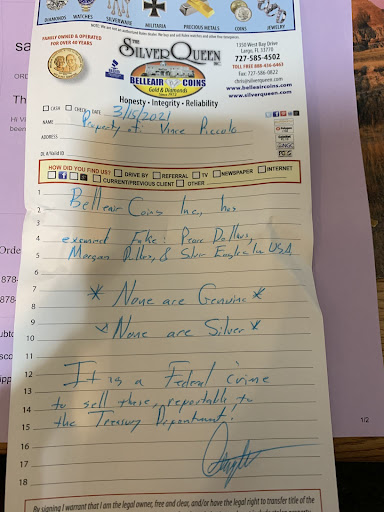 DIAMONDS WATCHES SILVERWARE MILITARIA PRECIOUS METALS COINS JEWELRY
FAMILY OWNED & OPERATED
FOR OVER 40 YEARS
THE
SILVER QUEEN
INC
BELLEAIR COINS
Gold & Diamonds
Since 1973
Honesty • Integrity • Reliability
1350 West Bay Drive
Largo, FL 33770
727-585-4502
TOLL FREE 888-416-6463
Fax: 727-586-0822
chris@silverqueen.com
www.belleaircoins.com
www.silverqueen.com
CASH CHECK DATE 3/5/2021
NAME Property of: Vince Piccolo
ADDRESS
DL #/Valid ID
HOW DID YOU FIND US? DRIVE BY REFERRAL TV NEWSPAPER INTERNET
CURRENT/PREVIOUS CLIENT OTHER
1 Belleair Coins Inc, has
2
3
4 examined Fake: Peace Dollars,
5 Morgan Dollars, & Silver Eagles
6
7 * None are Genuine *
8
9 * None are Silver *
10
11
12 It is a Federal crime
13
14 to sell these, reportable to
15 the Treasury Department!
16
17
18
By signing I warrant that I am the legal owner, free and clear, and/or have the legal right to transfer title of the
1/2